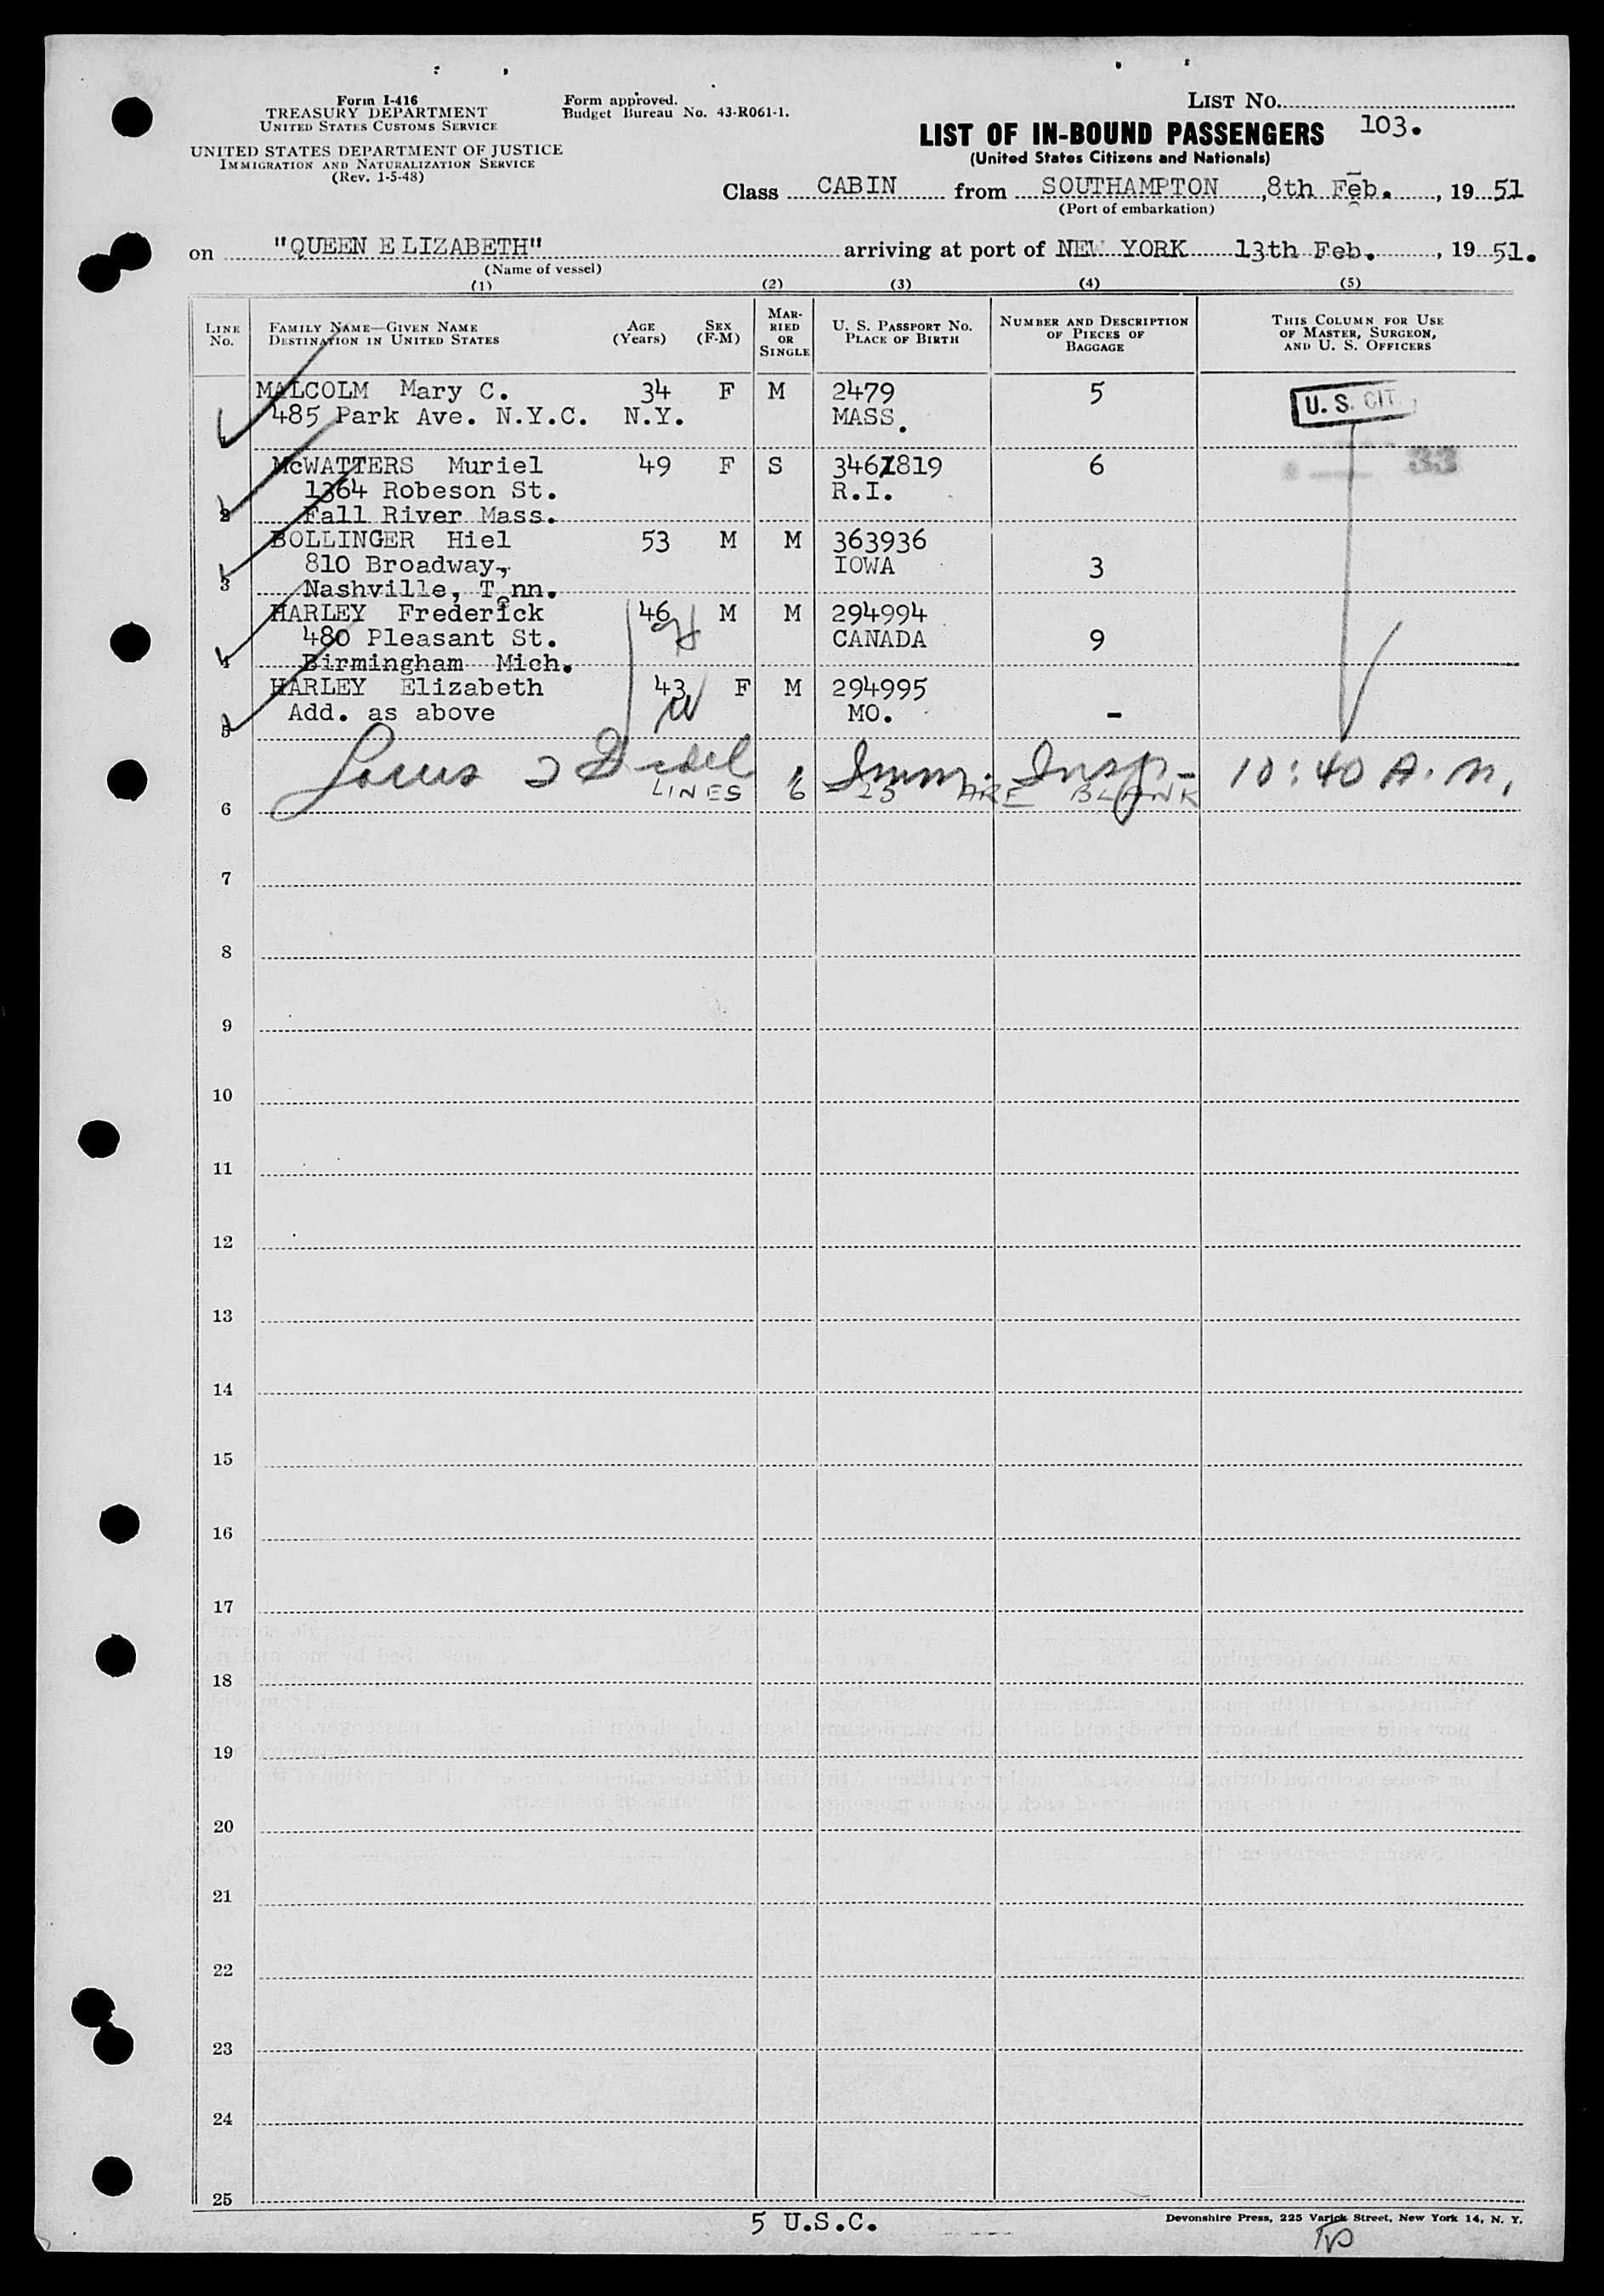 Form I-416
TREASURY DEPARTMENT
UNITED STATES CUSTOMS SERVICE
UNITED STATES DEPARTMENT OF JUSTICE
IMMIGRATION AND NATURALIZATION SERVICE
(Rev. 1-5-48)
Form approved.
Budget Bureau No. 43-R061-1.
LIST NO.
103.
LIST OF IN-BOUND PASSENGERS
(United States Citizens and Nationals)
Class CABIN from SOUTHAMPTON, 8th Feb., 19 51
(Port of embarkation)
on "QUEEN ELIZABETH" arriving at port of NEW YORK 13th Feb., 19 51.
(Name of vessel)
(1) (2) (3) (4) (5)
LINE NO. FAMILY NAME—GIVEN NAME DESTINATION IN UNITED STATES AGE (Years) SEX (F-M) MARRIED OR SINGLE U. S. PASSPORT NO. PLACE OF BIRTH NUMBER AND DESCRIPTION OF PIECES OF BAGGAGE THIS COLUMN FOR USE OF MASTER, SURGEON, AND U. S. OFFICERS
MALCOLM Mary C. 34 F M 2479 5 U. S. CIT.
1 485 Park Ave. N.Y.C. N.Y. MASS.
McWATTERS Muriel 49 F S 3461819 6 33
1364 Robeson St. R.I.
2 Fall River Mass.
BOLLINGER Hiel 53 M M 363936
810 Broadway, IOWA 3
3 Nashville, Tenn.
HARLEY Frederick 46 M M 294994
480 Pleasant St. CANADA 9
4 Birmingham Mich.
HARLEY Elizabeth 43 F M 294995
Add. as above MO. -
5
Imm. Insp- 10:40 A.M.
LINES 6 25 ARE BLANK
6
7
8
9
10
11
12
13
14
15
16
17
18
19
20
21
22
23
24
25
5 U.S.C.
Devonshire Press, 225 Varick Street, New York 14, N. Y.